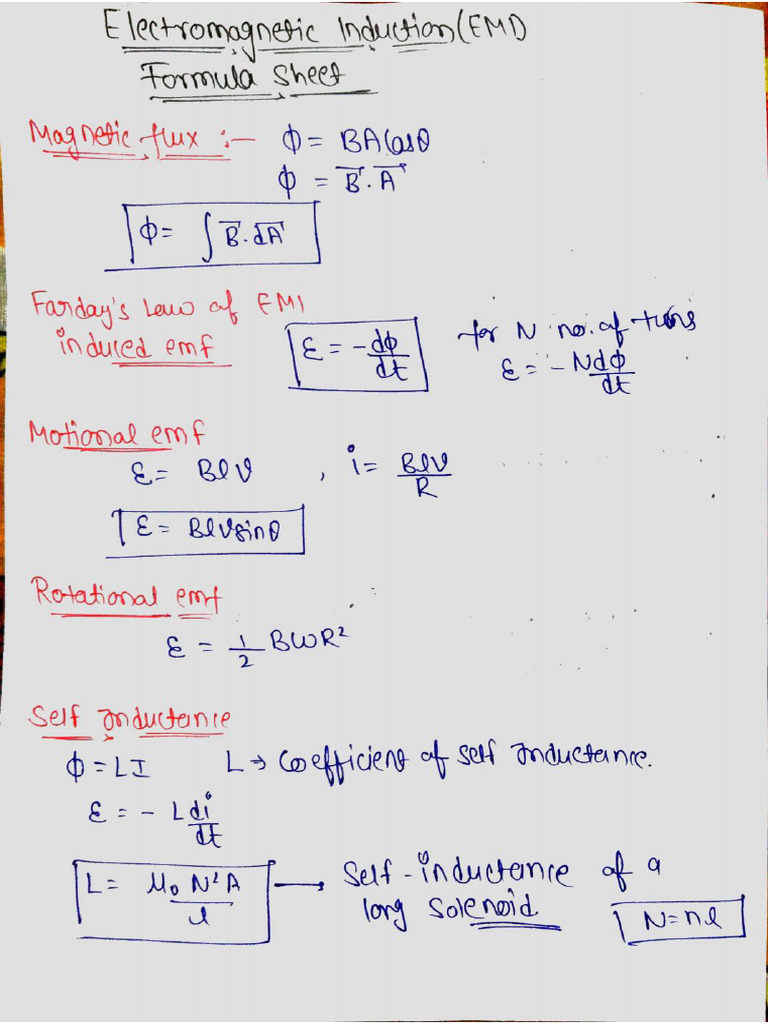 Electromagnetic Induction (EMI)
Formula Sheet
Magnetic flux :- ϕ = BA Cosθ
ϕ = B⃗.A⃗
ϕ = ∫ B⃗.dA⃗
Farday's Law of EMI
induced emf ε = -dϕ/dt for N no. of turns
ε = -Ndϕ/dt
Motional emf
ε = Blv , i = Blv/R
ε = Blvsinθ
Rotational emf
ε = 1/2 BωR²
Self Inductance
ϕ = LI L → Coefficient of self Inductance.
ε = - Ldi/dt
L = μ₀N²A/l → Self-inductance of a
long Solenoid N=nl